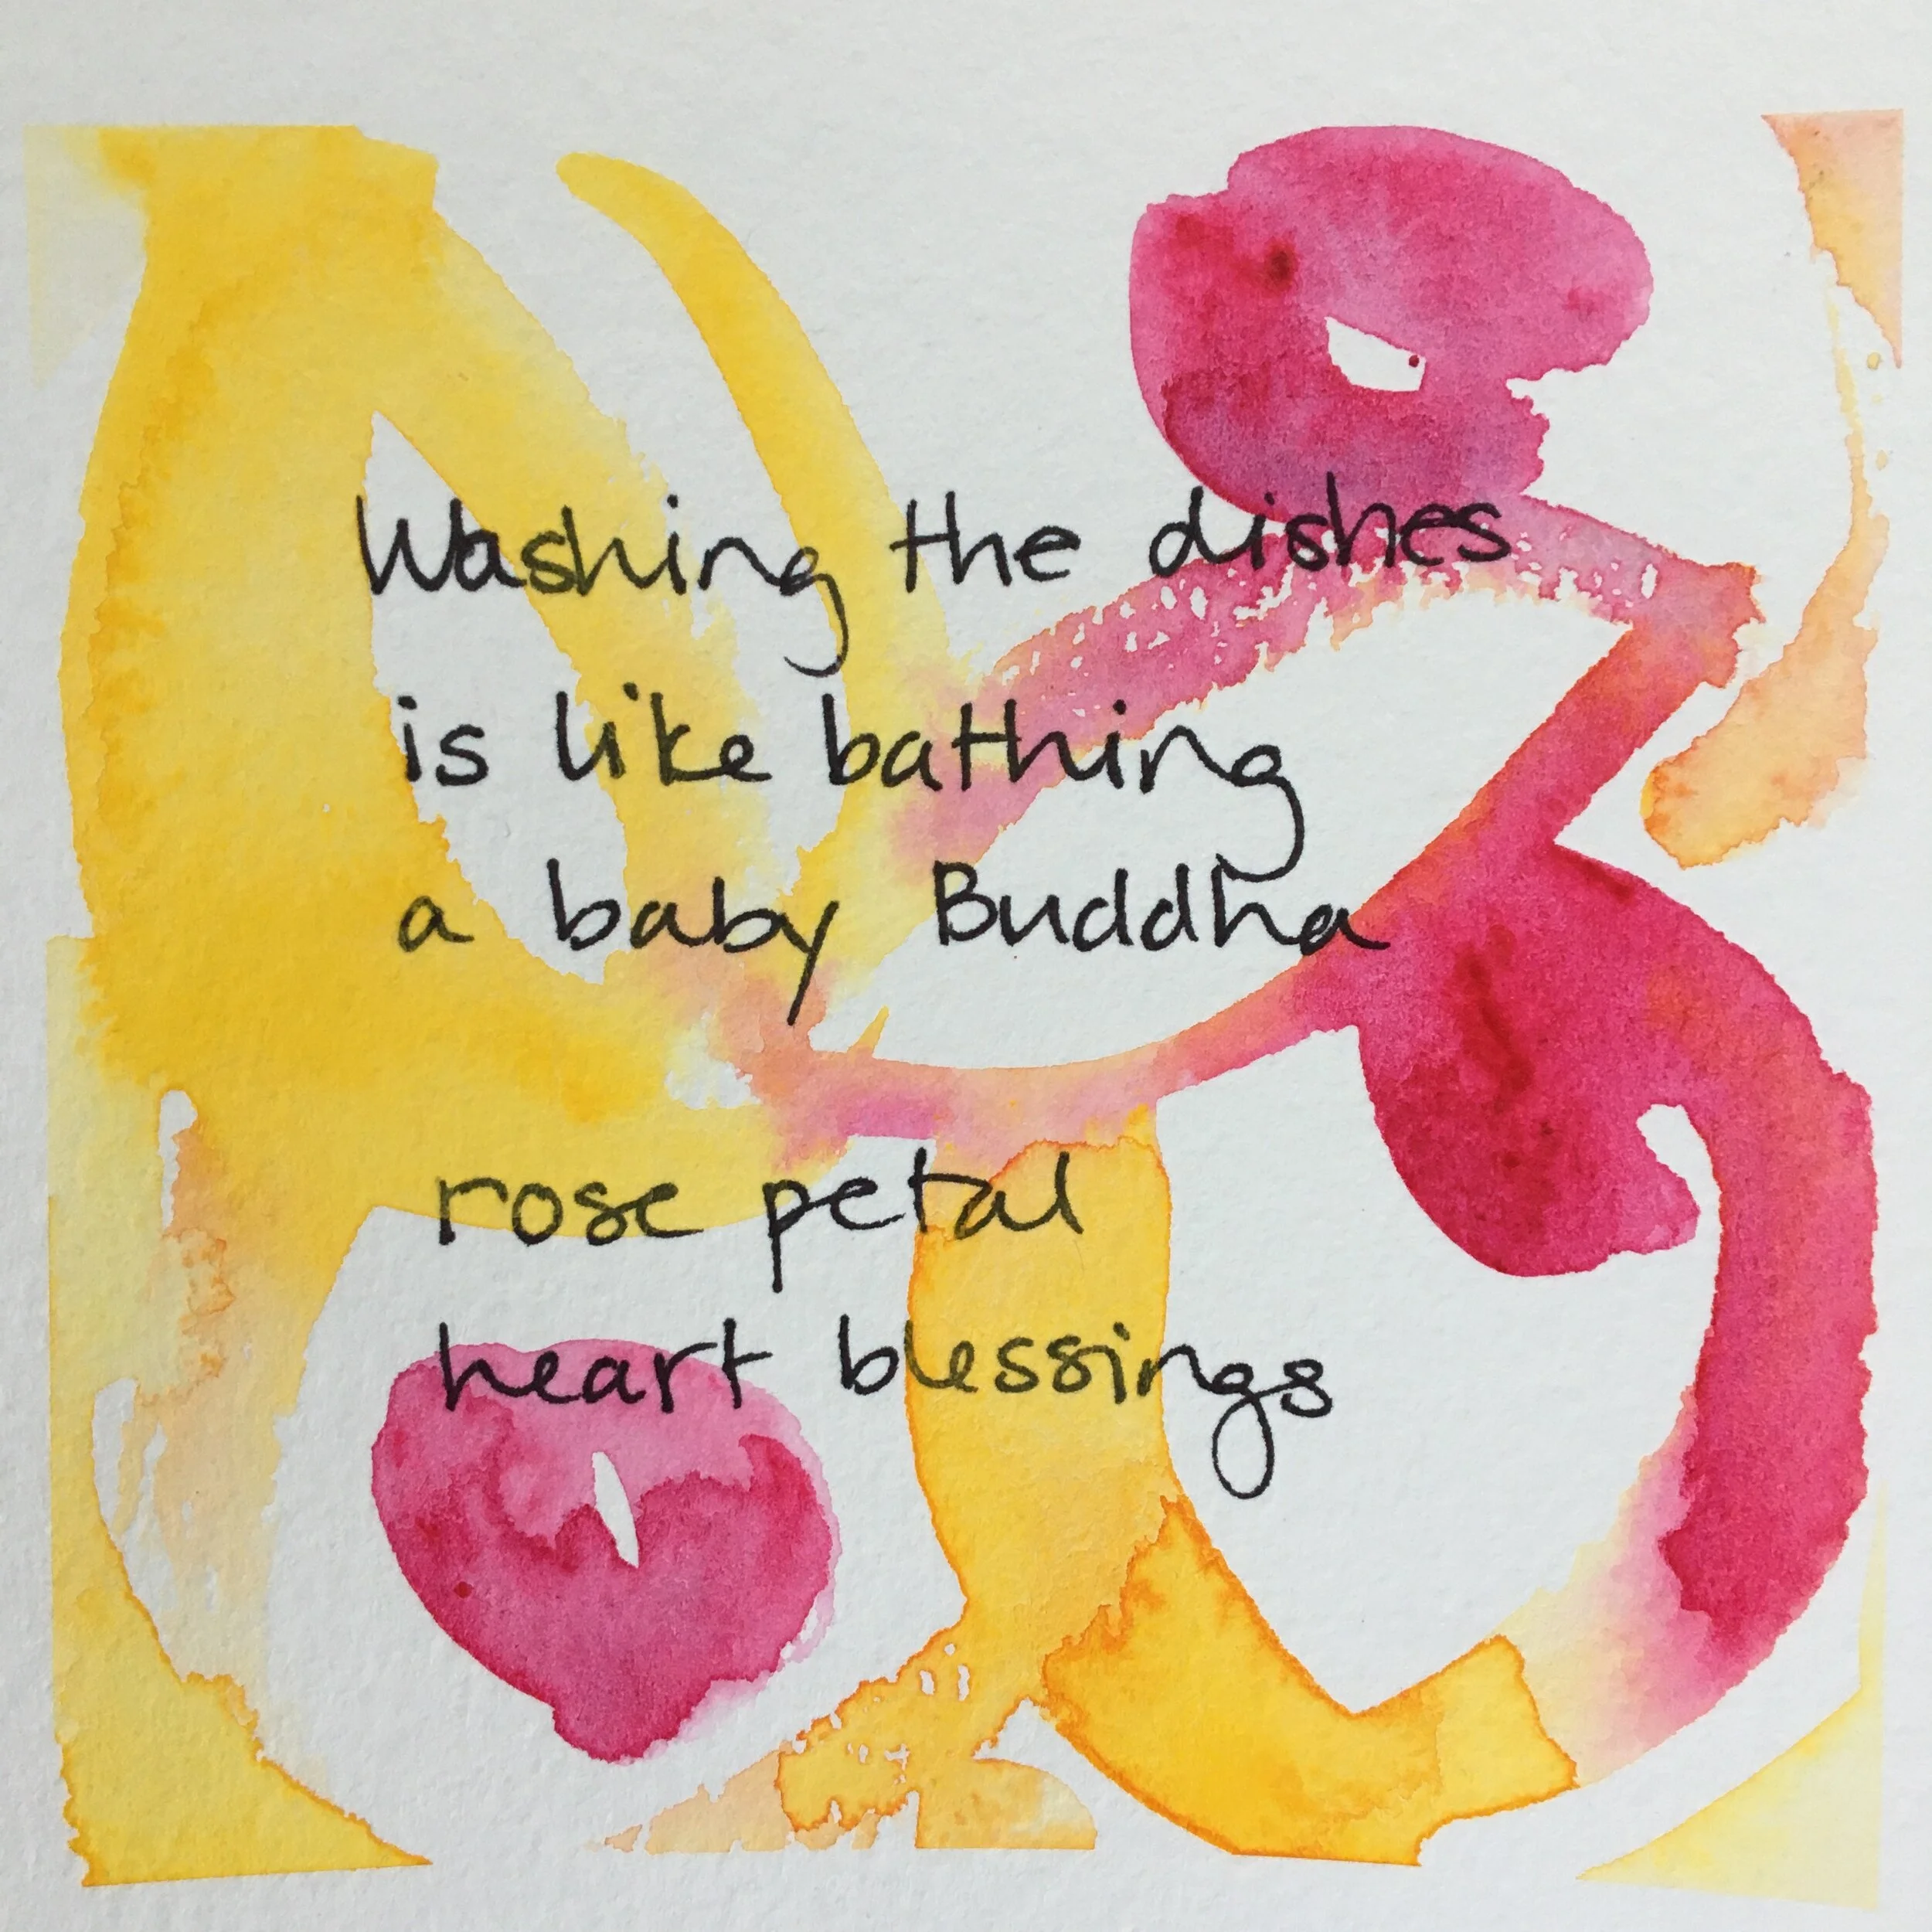 Washing the dishes
is like bathing
a baby Buddha
rose petal
heart blessings